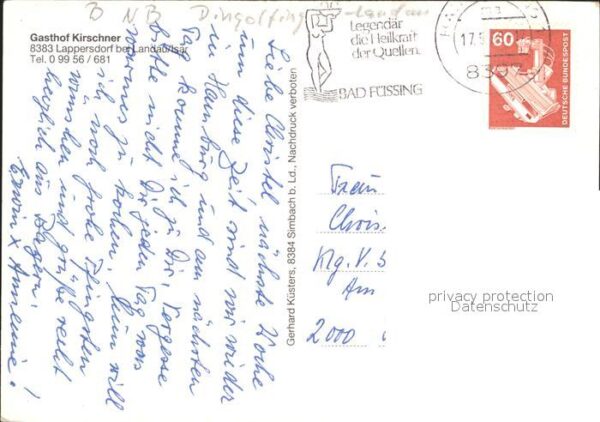 B NB Dingolfing-Landau
Gasthof Kirschner
8383 Lappersdorf bei Landau/Isar
Tel. 0 99 56 / 681
Liebe Christel nächste Woche
um diese Zeit sind wir wieder
in Hamburg und am nächsten
Tag komme ich zu Dir, Vergesse
bitte nicht Dir jeden Tag was
warmes zu kochen. Nun will
ich noch frohe Pfingsten
wünschen und grüße recht
herzlich aus Bayern.
Erwin x Annemie!
Gerhard Küsters, 8384 Simbach b. Ld., Nachdruck verboten
Legendär
die Heilkraft
der Quellen.
BAD FÜSSING
17.5
8397
60
DEUTSCHE BUNDESPOST
Frau
Chris
Klg. V. S
Am
2000
privacy protection
Datenschutz